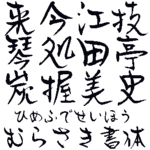 来今江技
琴処田亭
炭握美史
ひめふでせいほう
むらさき書体